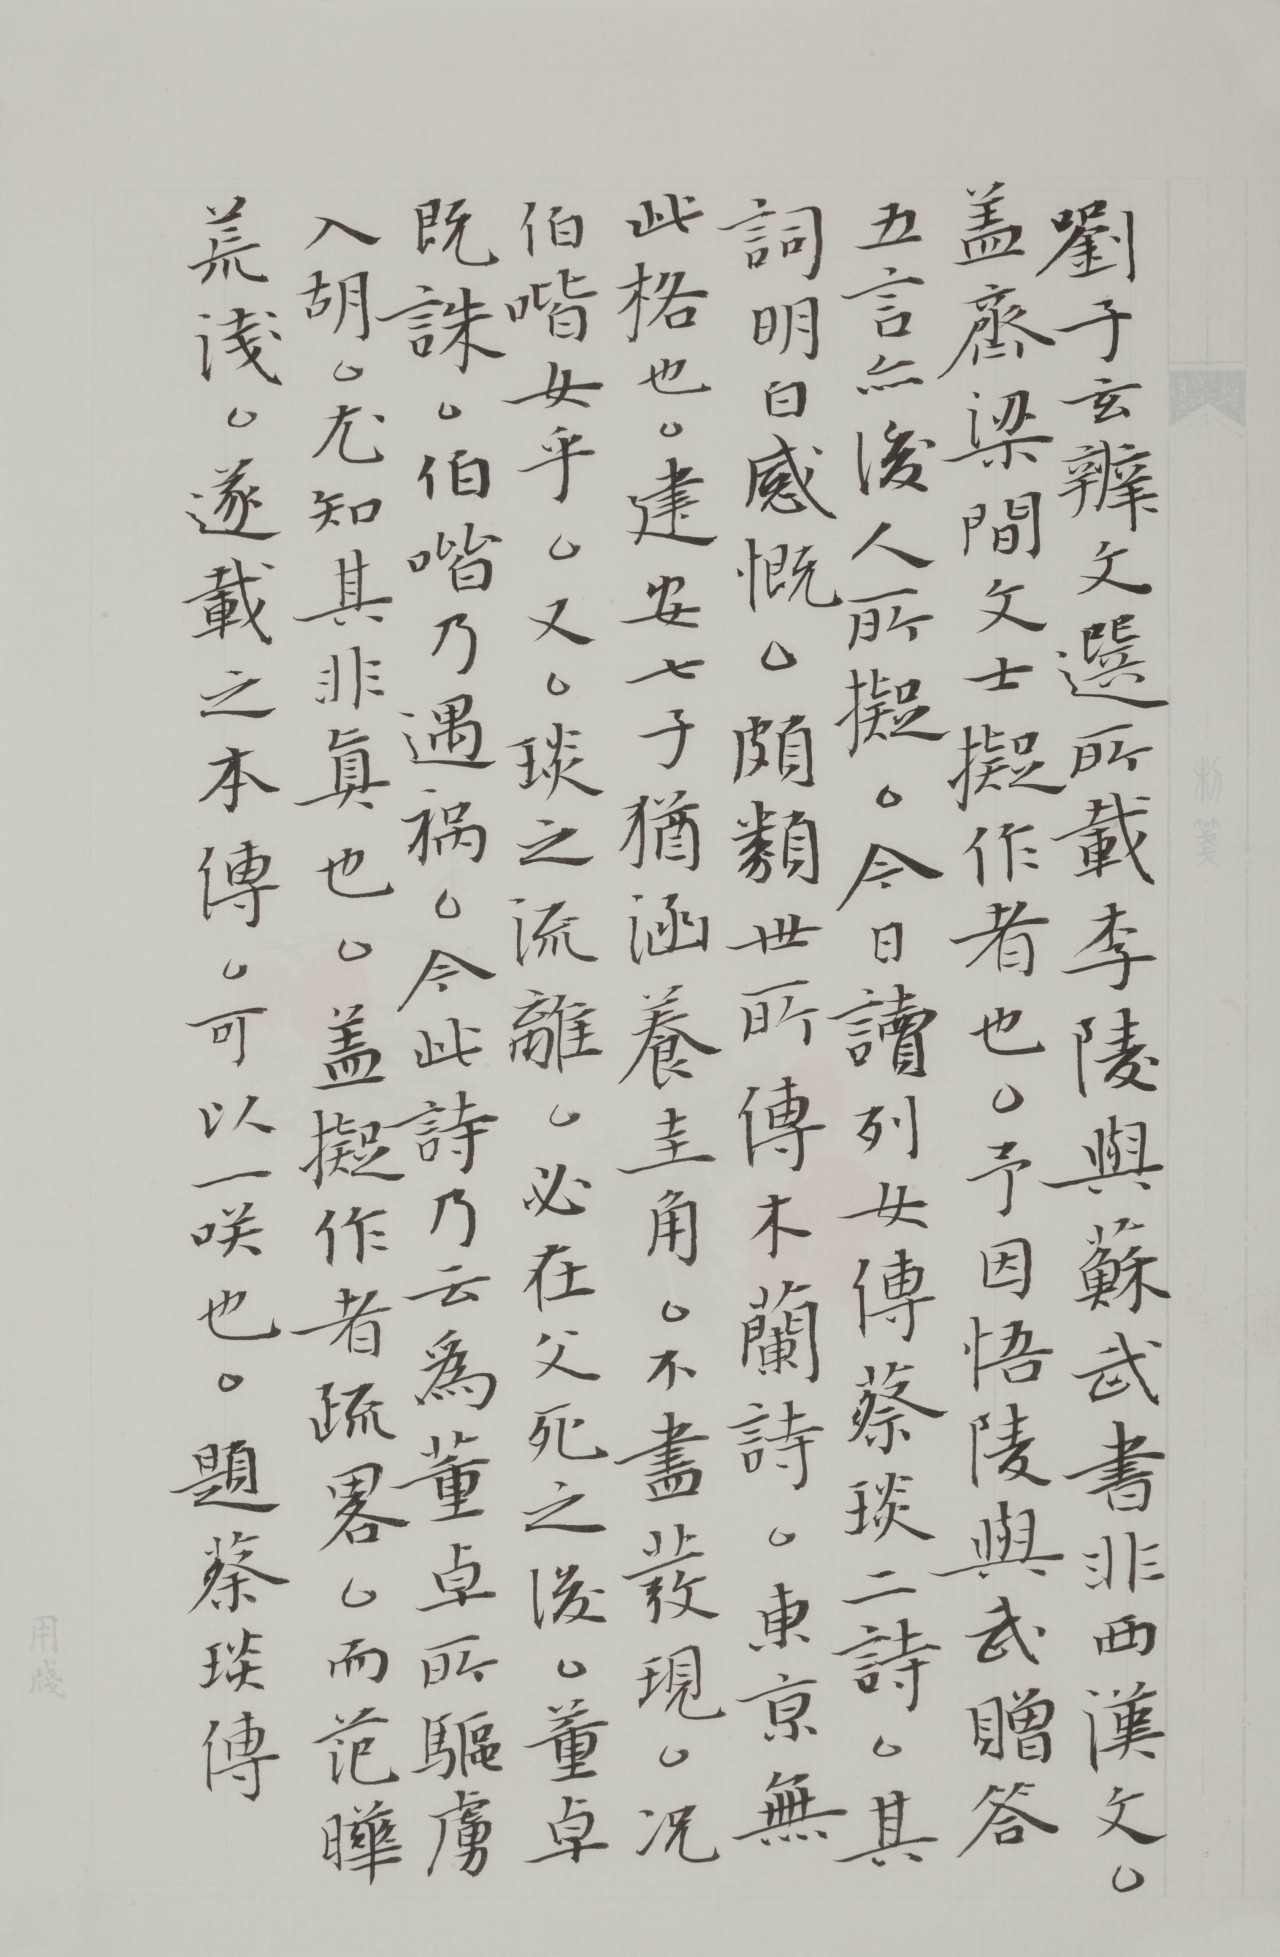 劉子玄辨文選所載李陵與蘇武書非西漢文。
盖齊梁間文士擬作者也。予因悟陵與武贈答
五言亦後人所擬。今日讀列女傳蔡琰二詩。其
詞明白感慨。頗類世所傳木蘭詩。東京無
此格也。建安七子猶涵養圭角。不盡發現。况
伯喈女乎。又。琰之流離。必在父死之後。董卓
既誅。伯喈乃遇禍。今此詩乃云為董卓所驅虜
入胡。尤知其非真也。盖擬作者疏畧。而范曄
荒淺。遂載之本傳。可以一咲也。題蔡琰傳
用箋